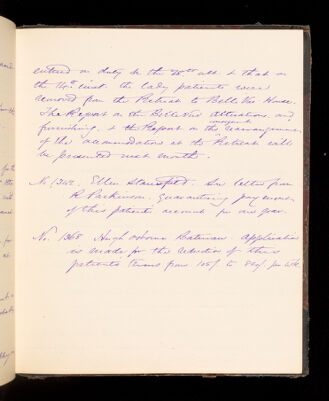 entered on duty on the 28th ult. & that on
the 14th inst. the lady patients were
removed from the Retreat to Belle Vue House.
The Report on the Bellevue alterations, and
furnishing, & the Report on the rearrangement
of the accommodations at the Retreat will
be presented next month.
No. Ellen. See letter from
R. Parkinson. Guaranteeing payment
of this patient's account for one year.
No. 1368. Hugh Osborne Bateman. Application
is made for the reduction of this
patient's terms from 105/- to 84/- per week